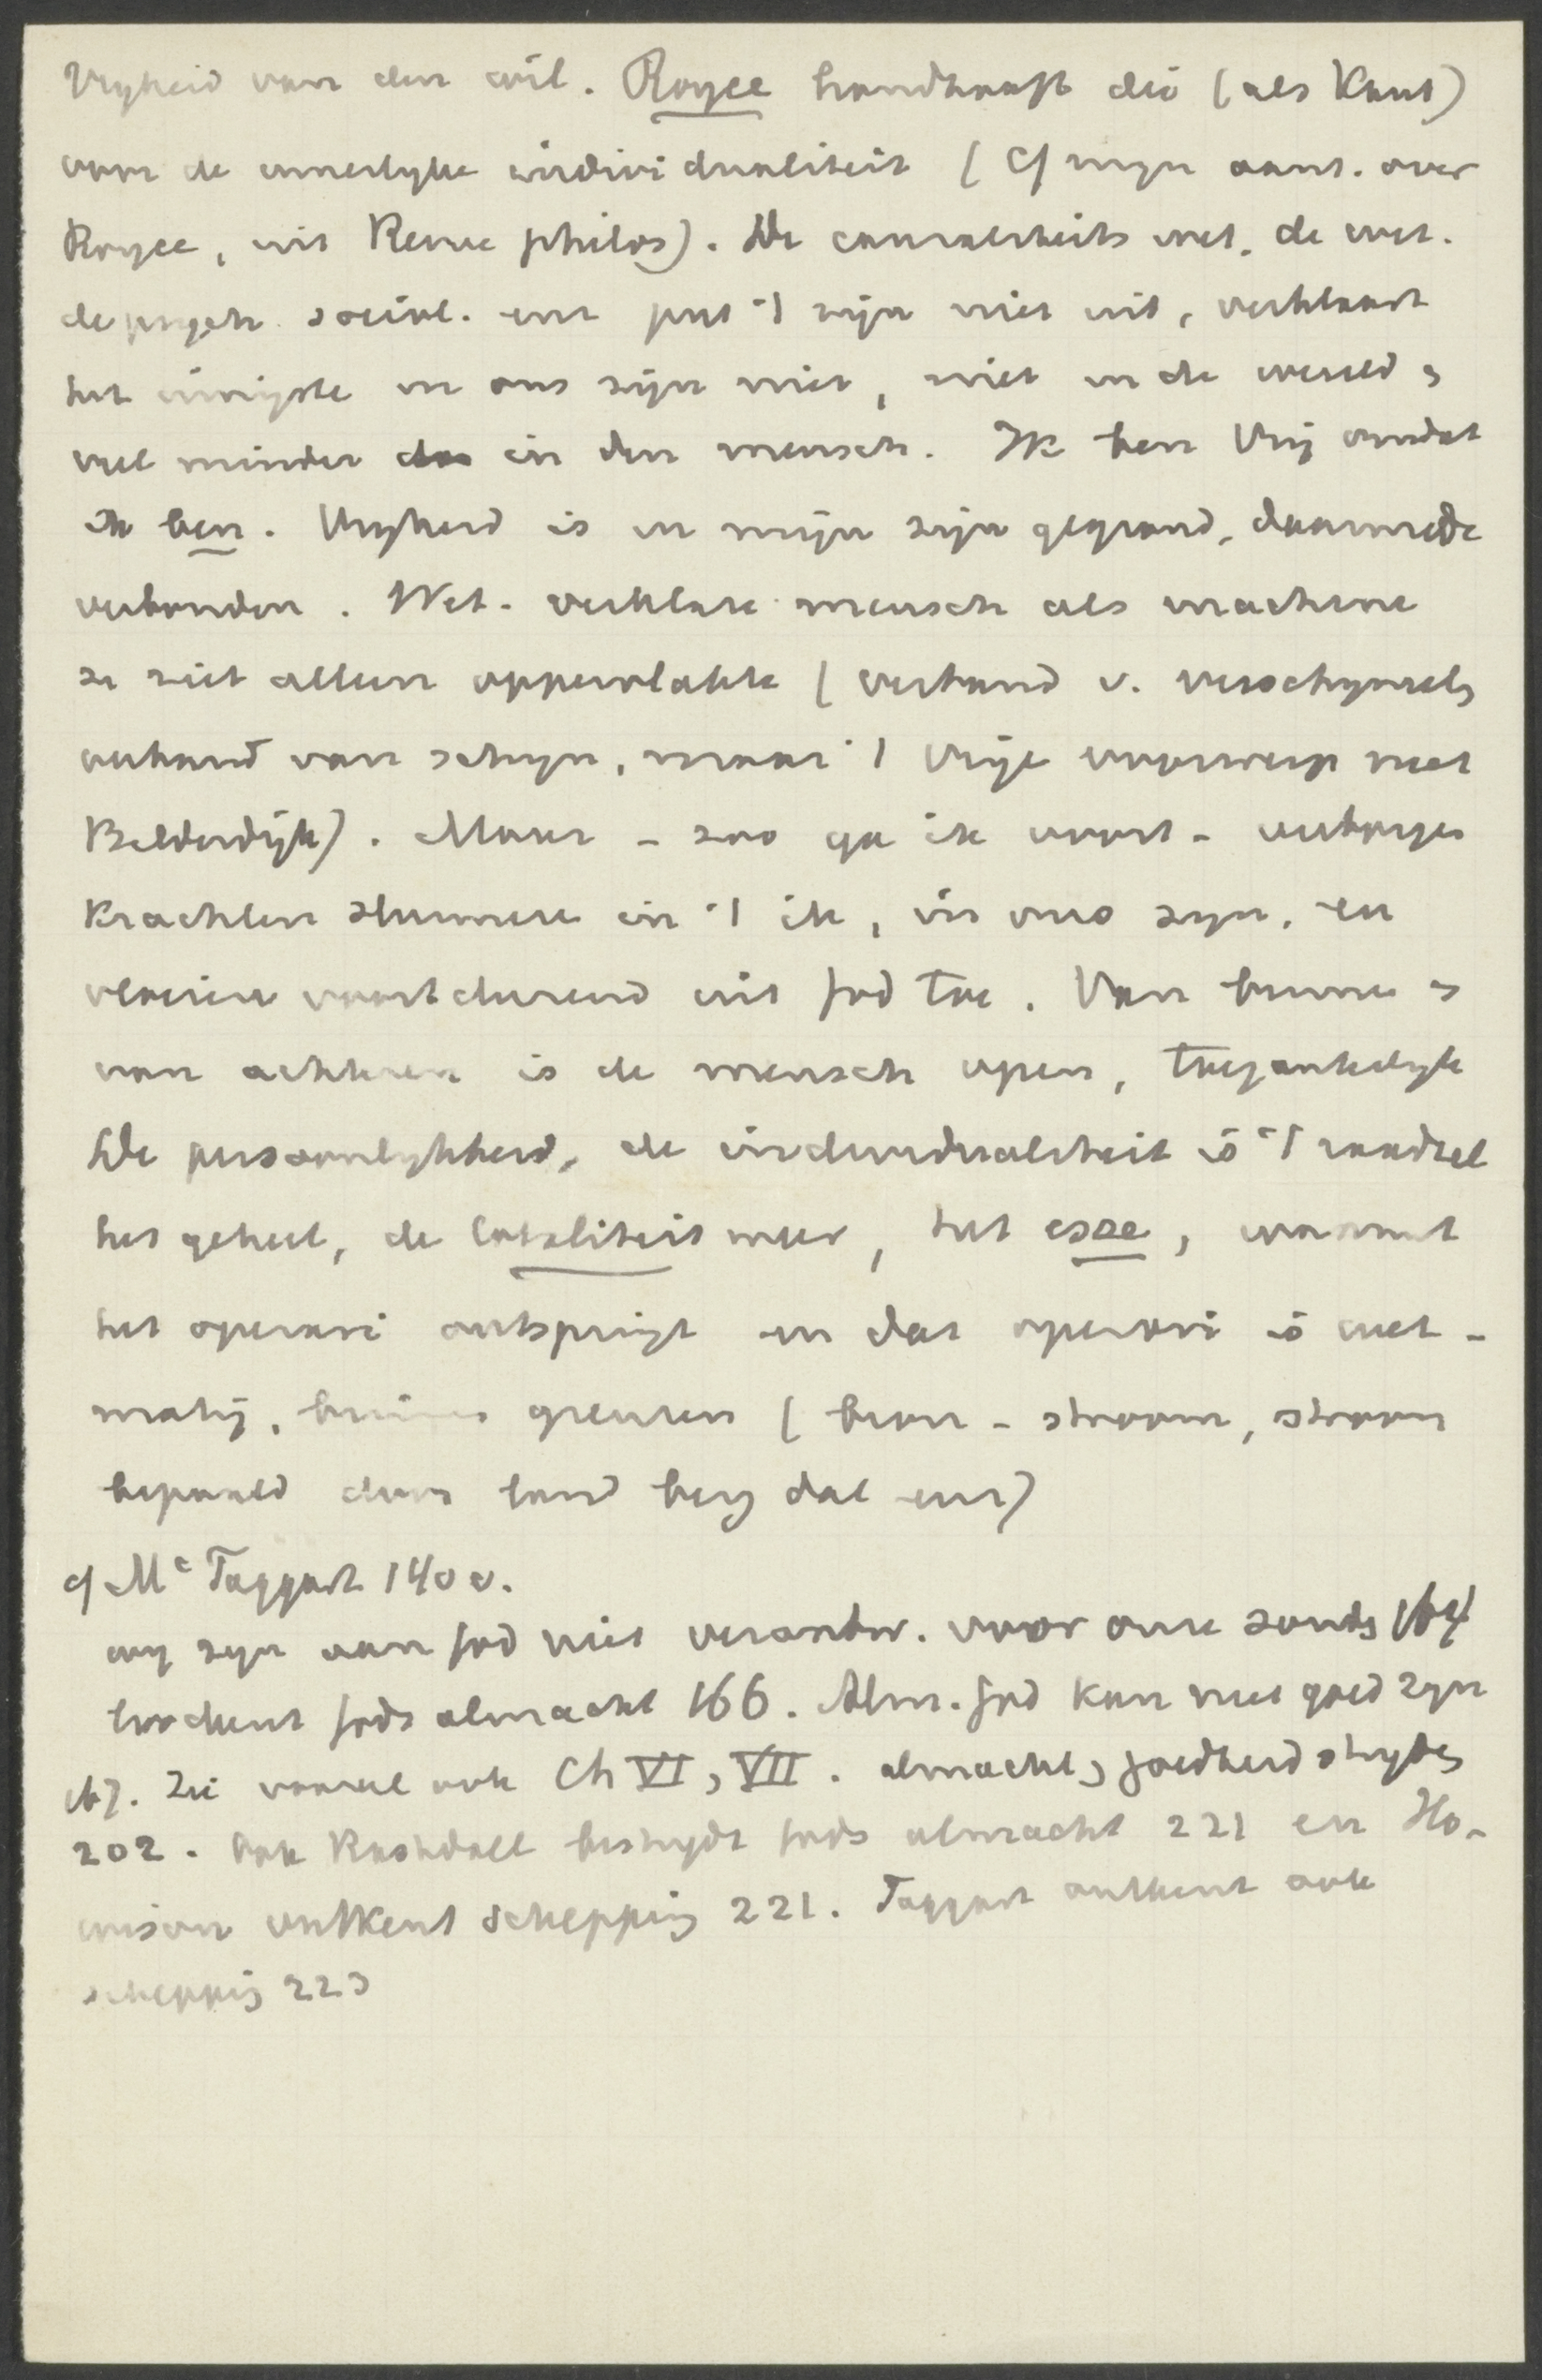 Vryheid van den wil. Royce handhaaft die (als Kant)
voor de innerlyke individualiteit (Cf myn aant. over
Royce, uit Revue philos). De causaliteits wet, de wet.
de psych. sociol. enz put 't zijn niet uit, verklaart
het innigste in ons zijn niet, niet in de wereld &
veel minder in den mensch. Ik ben vrij omdat
ik ben. Vryheid is in mijn zijn gegrond, daarmede
verbonden. Wet. verklare mensch als machine
ze ziet alleen oppervlakte (verband v. verschynsels
verband van schyn, maar 't vrije voorwerp niet
Bilderdijk). Maar - zoo ga ik voort - verborgen
krachten sluimere in 't ik, in ons zyn, en
vloeien voortdurend uit God toe. Van binnen &
van achteren is de mensch open, toegankelyk
De persoonlykheid, de individualiteit is 't raadsel
het geheel, de totaliteit weer, het esse, waaruit
het operari ontspringt en dat operari is wet-
matig, binnen grenzen (bron - stroom, stroom
bepaald door land berg dal enz)
cf Mc Taggart 140 v.
wy zyn aan God niet verantw. voor onze zonds 164
loochent Gods almacht 166. Alm. God kan niet goed zyn
167. Zie vooral ook Ch VI, VII. almacht & goedheid stryden
202. Ook Rashdall bestrydt Gods almacht 221 en Ho-
wison ontkent schepping 221. Taggart ontkent ook
schepping 223